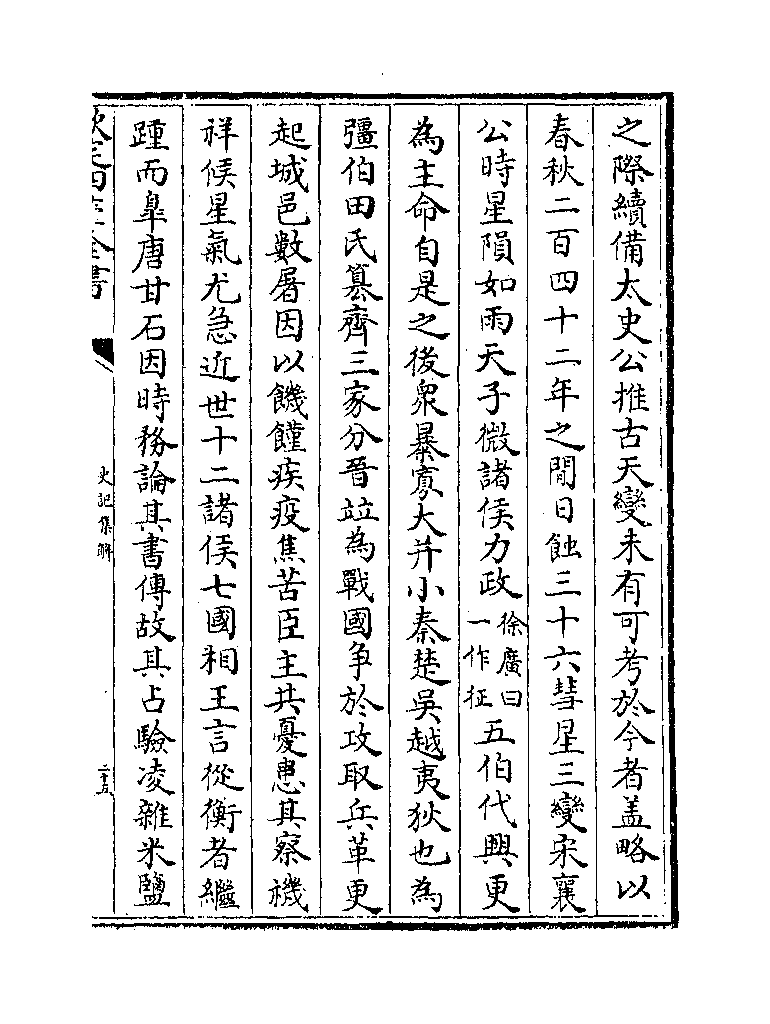 之際續備太史公推古天變未有可考於今者盖略以
春秋二百四十二年之間日蝕三十六彗星三變宋襄
公時星隕如雨天子微諸侯力政徐廣曰一作征五伯代興更
為主命自是之後衆暴寡大并小秦楚吳越夷狄也為
彊伯田氏簒齊三家分晉竝為戰國爭於攻取兵革更
起城邑數屠因以饑饉疾疫焦苦臣主共憂患其察禨
祥候星氣尤急近世十二諸侯七國相王言從衡者繼
踵而臯唐甘石因時務論其書傳故其占驗凌雜米鹽
欽定四庫全書
史記集解
二十五